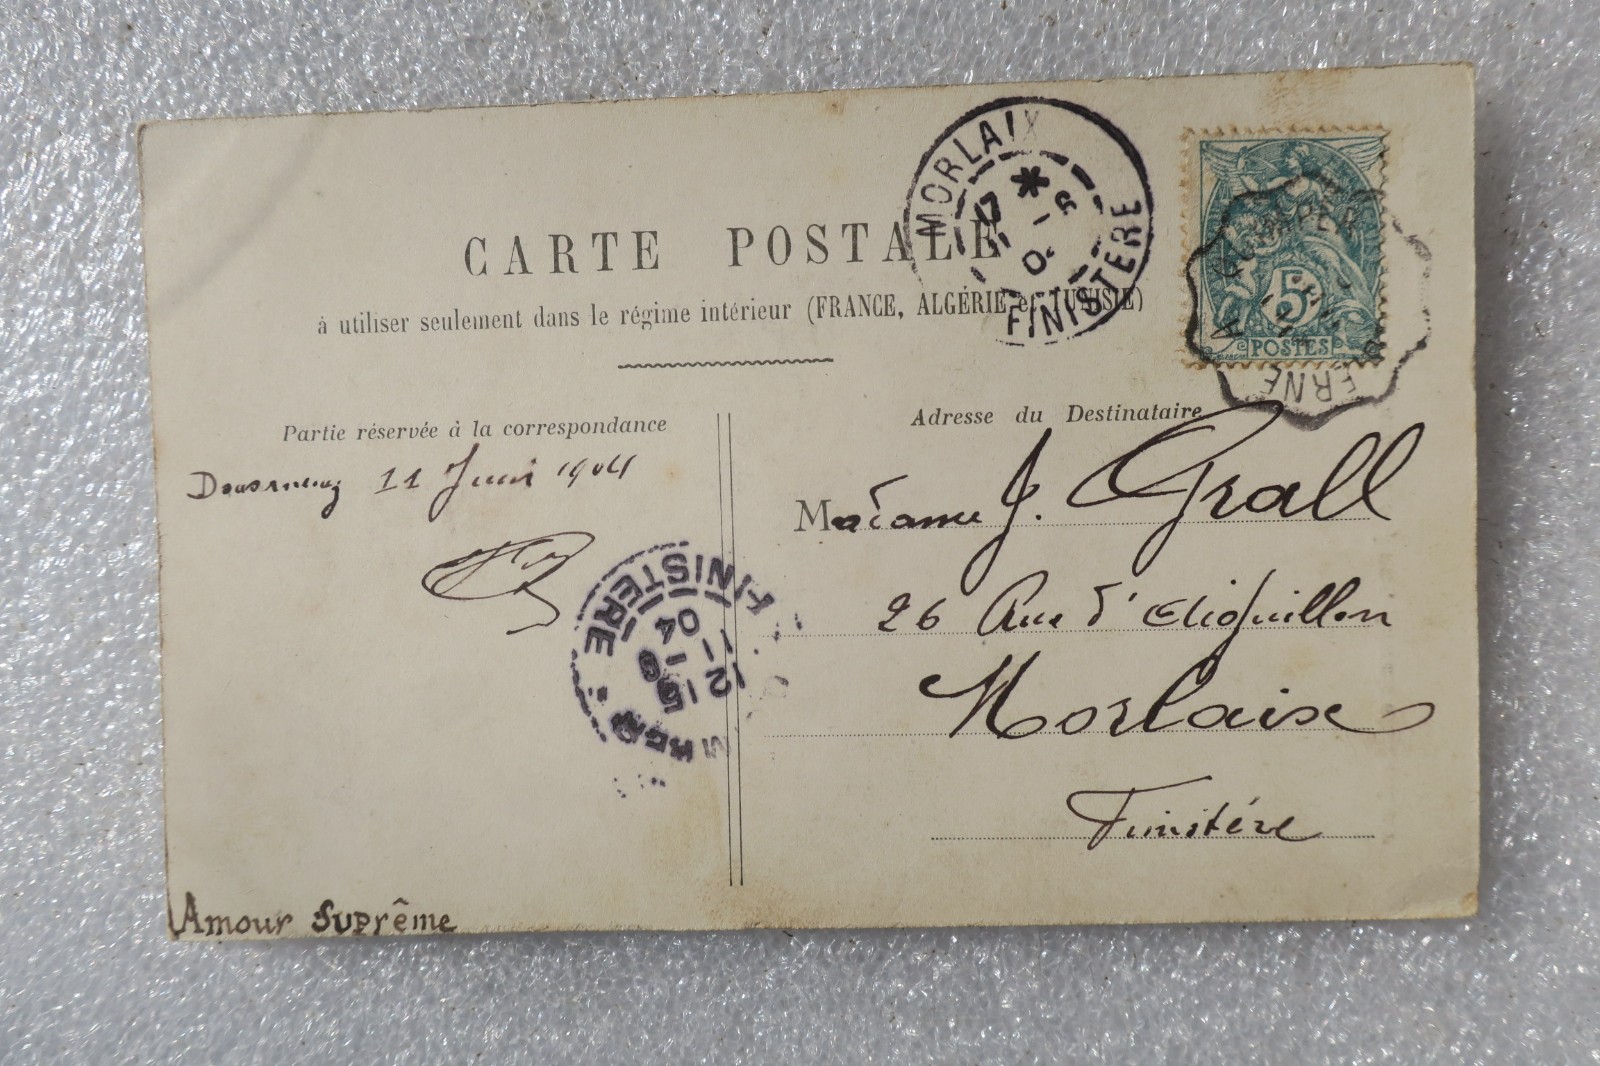 CARTE POSTALE
à utiliser seulement dans le régime intérieur (FRANCE, ALGÉRIE et TUNISIE)
MORLAIX
FINISTÈRE
5
POSTES
Partie réservée à la correspondance
Douarnenez 11 Juin 1904
FINISTERE
04
Adresse du Destinataire
Madame J. Grall
26 Rue d'
Morlaix
Finistère
Amour Suprême